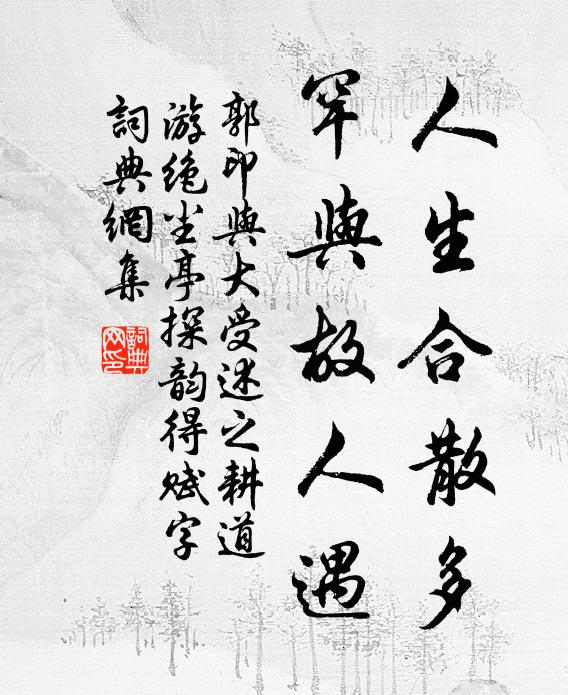 人生合散多
罕與故人遇
郭印與大受述之耕道
游绝尘亭探韵得赋字
詞典網集
詞典網印